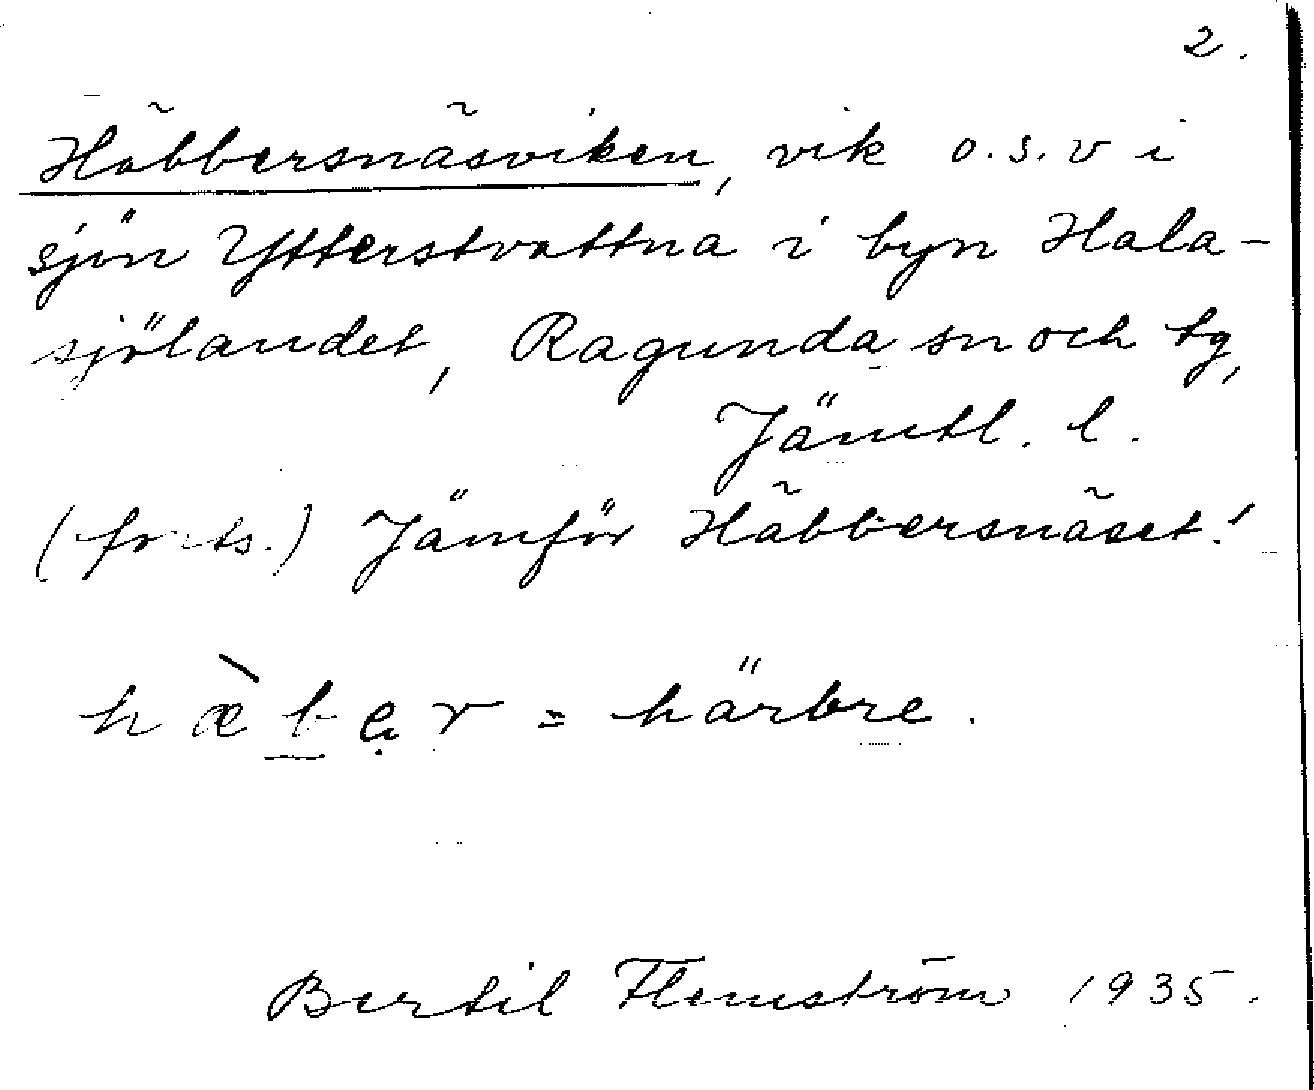 2.
Häbbersnäsviken, vik o.s.v i
sjön Ytterstvattna i byn Hala-
sjölandet, Ragunda sn och tg,
Jämtl. l.
(forts.) Jämför Häbbersnäset!
hæ̀ber = härbre.
Bertil Flemström 1935.